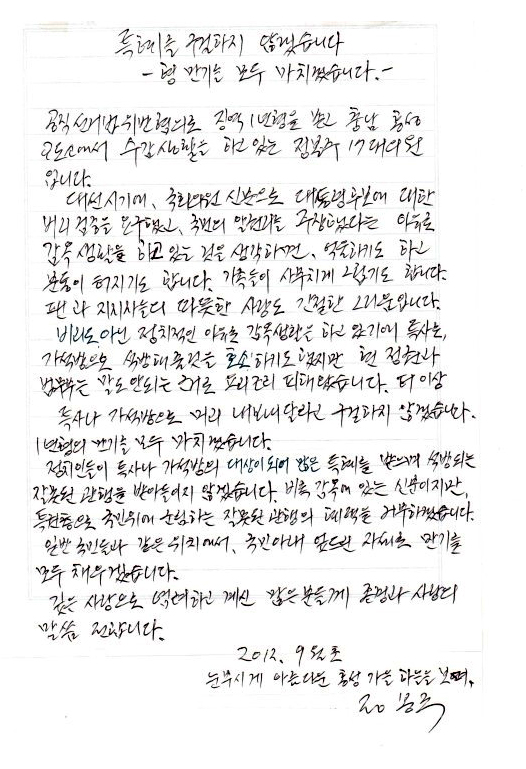 특혜를 구걸하지 않겠습니다
- 형 만기를 모두 마치겠습니다. -
공직선거법 위반 혐의로 징역 1년형을 받고 충남 홍성
교도소에서 수감생활을 하고 있는 정봉주 17대의원
입니다.
대선시기에, 국회의원 신분으로 대통령후보에 대한
비리 검증을 요구했고, 국민의 알권리를 주장했다는 이유로
감옥생활을 하고 있는 것을 생각하면, 억울하기도 하고
분통이 터지기도 합니다. 가족들이 사무치게 그립기도 합니다.
팬과 지지자들의 따뜻한 사랑도 간절한 그리움입니다.
비리도 아닌 정치적인 이유로 감옥생활을 하고 있기에 특사로,
가석방으로 석방해줄것을 호소하기도 했지만 현 정권과
법무부는 말도 안되는 근거로 요리조리 피해왔습니다. 더이상
특사나 가석방으로 미리 내보내달라고 구걸하지 않겠습니다.
1년형의 만기를 모두 마치겠습니다.
정치인들이 특사나 가석방의 대상이 되어 많은 특혜를 받으며 석방되는
잘못된 관행을 받아들이지 않겠습니다. 비록 감옥에 있는 신분이지만,
특권층으로 국민위에 군림하는 잘못된 관행의 혜택을 거부하겠습니다.
일반 국민들과 같은 위치에서, 국민아래 엎드린 자세로 만기를
모두 채우겠습니다.
깊은 사랑으로 염려하고 계신 많은분들께 존경과 사랑의
말씀 전합니다.
2012. 9월 초
눈부시게 아름다운 홍성 가을 하늘을 보며,
정봉주